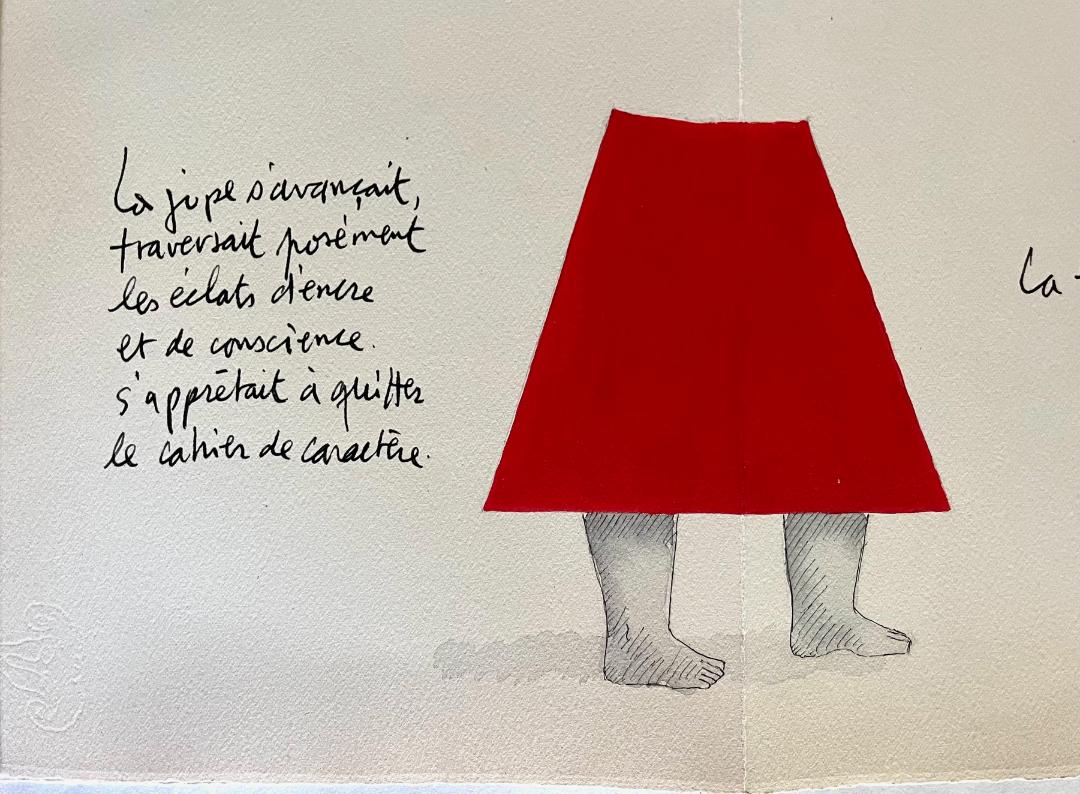 La jupe s'avançait,
traversait posément
les éclats d'encre
et de conscience.
s'apprêtait à quitter
le cahier de caractère.
La